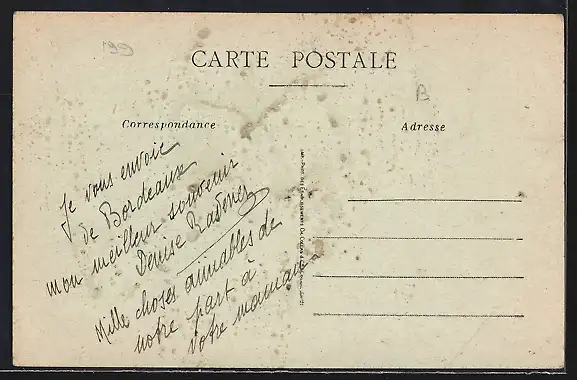 199
CARTE POSTALE
B
Correspondance
Adresse
Je vous envoie
de Bordeaux
mon meilleur souvenir
Denise
Mille choses aimables de
notre part à
votre maman